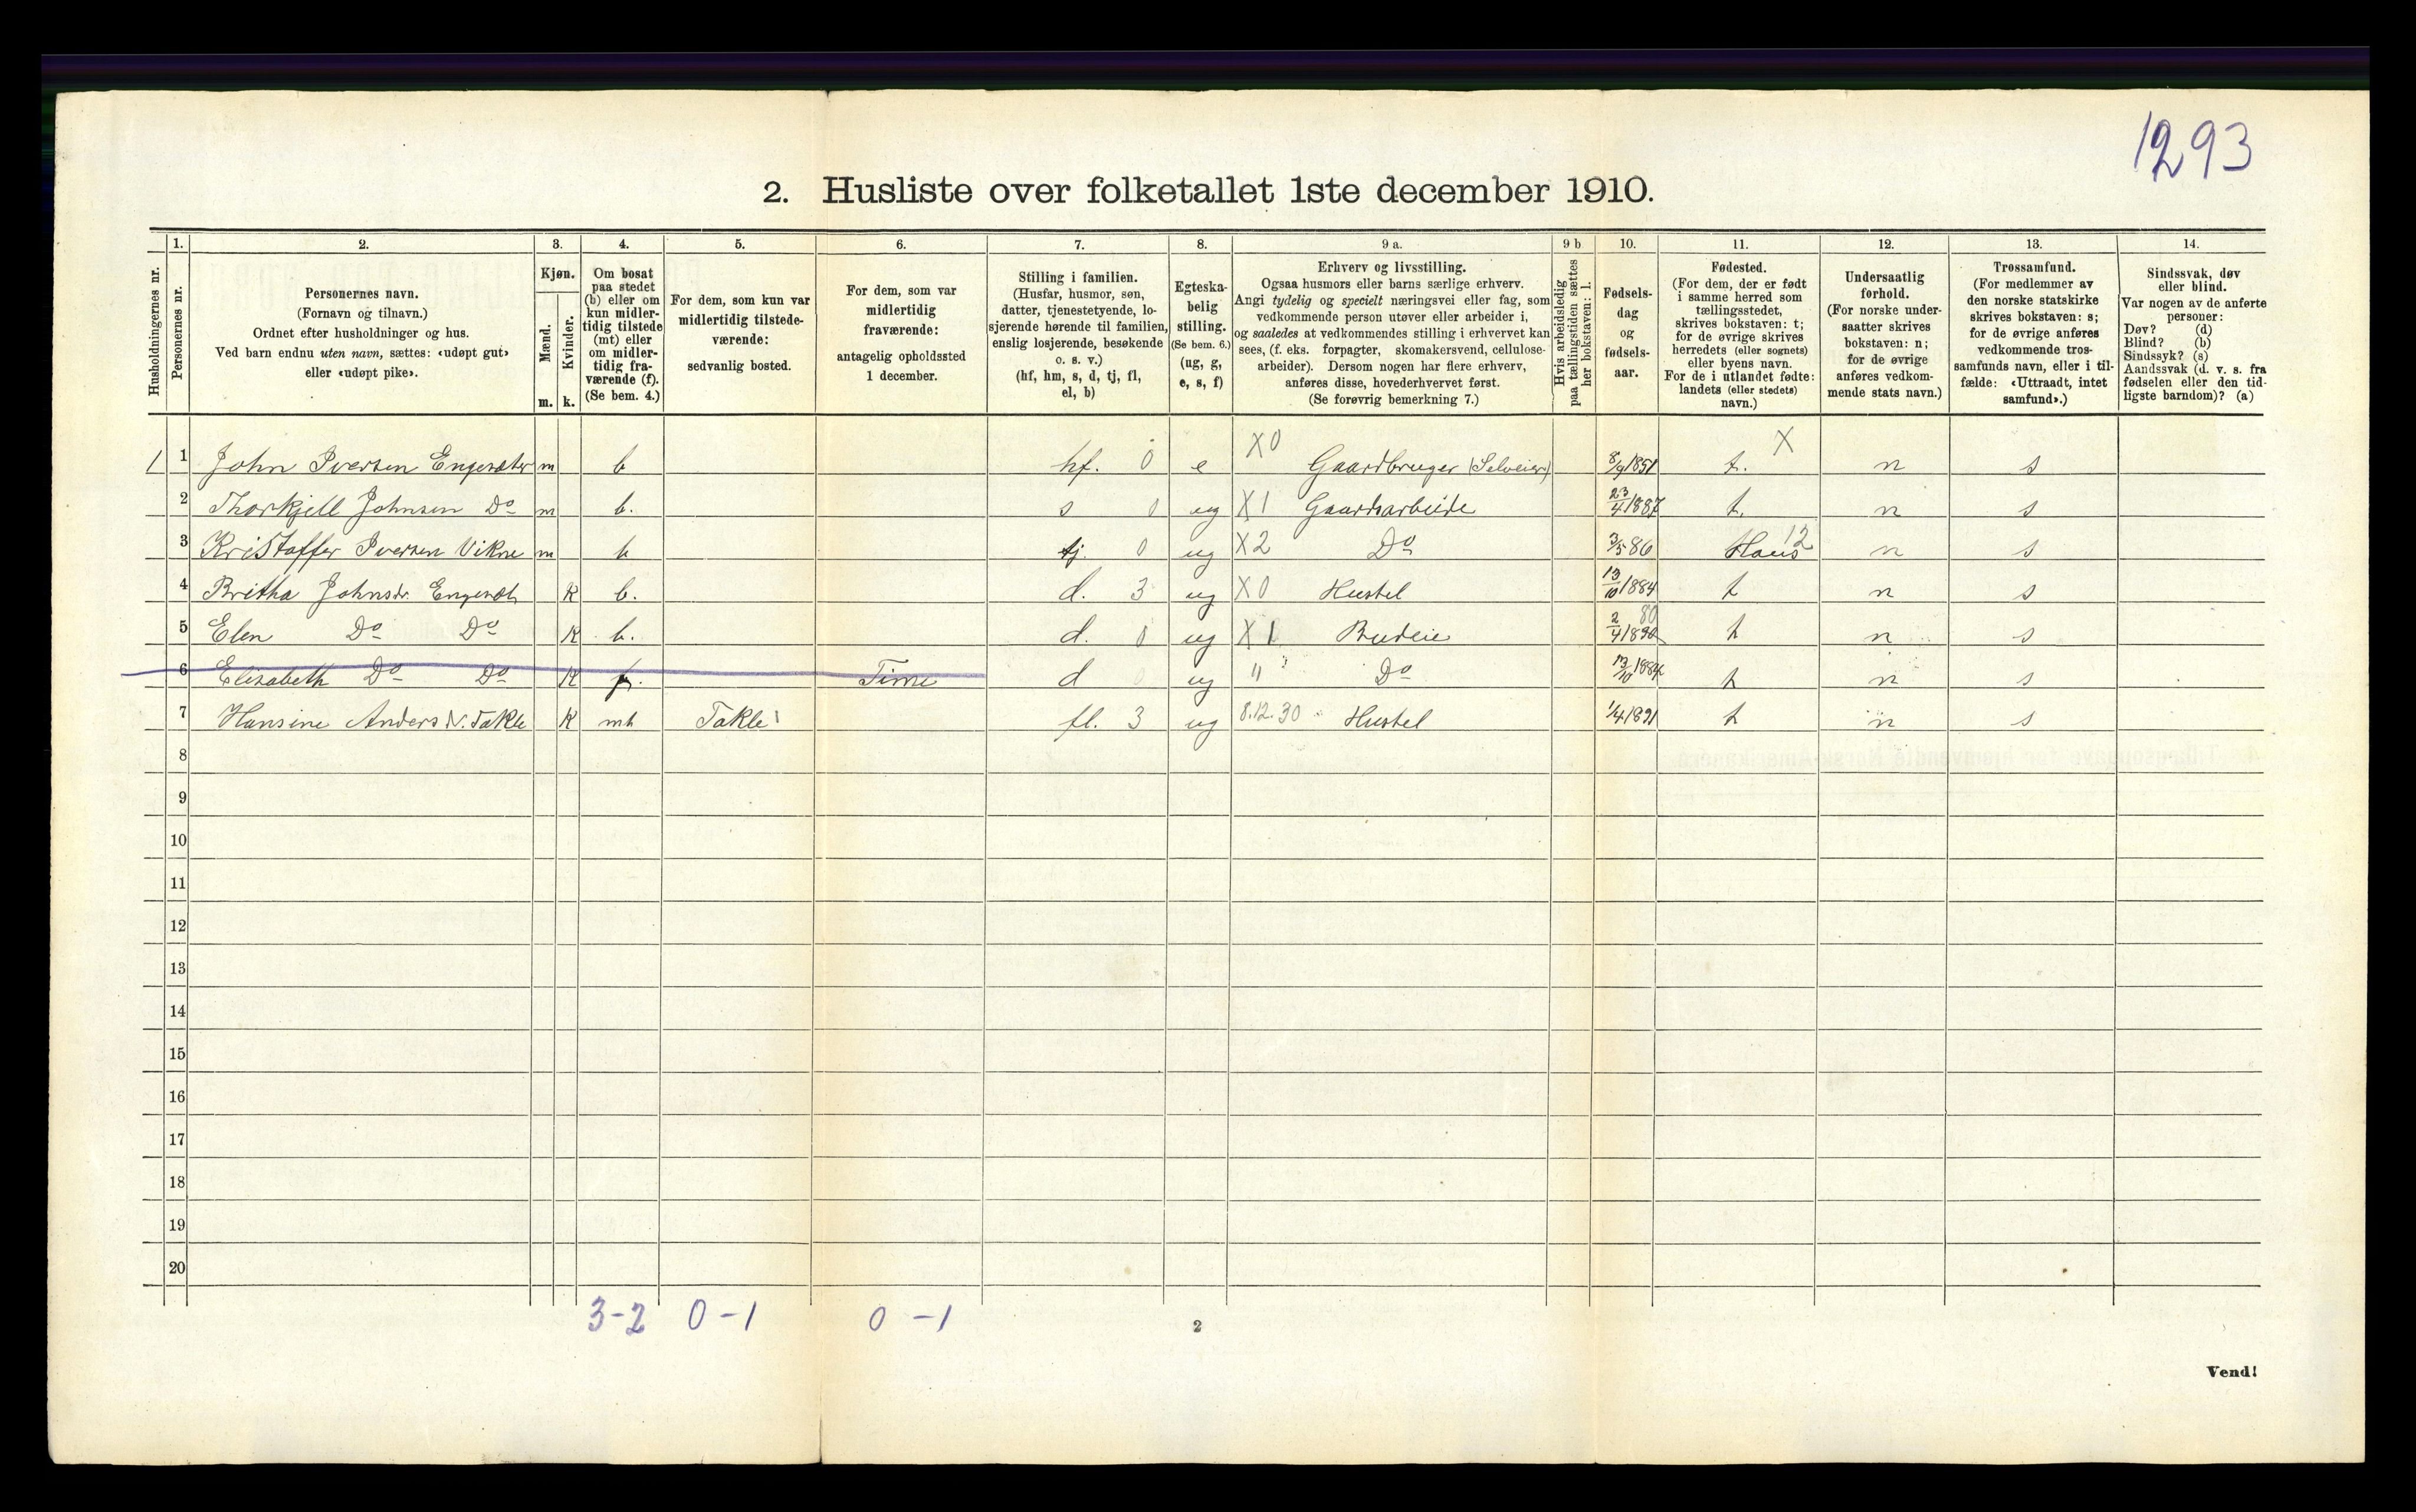 1293
2. Husliste over folketallet 1ste december 1910.
Husholdningernes nr.
1.
Personernes nr.
2.
Personernes navn.
(Fornavn og tilnavn.)
Ordnet efter husholdninger og hus.
Ved barn endnu uten navn, sættes: «udøpt gut»
eller «udøpt pike».
3.
Kjøn.
Mænd.
Kvinder.
m. k.
4.
Om bosat
paa stedet
(b) eller om
kun midler-
tidig tilstede
(mt) eller
om midler-
tidig fra-
værende (f).
(Se bem. 4.)
5.
For dem, som kun var
midlertidig tilstede-
værende:
sedvanlig bosted.
6.
For dem, som var
midlertidig
fraværende:
antagelig opholdssted
1 december.
7.
Stilling i familien.
(Husfar, husmor, søn,
datter, tjenestetyende, lo-
sjerende hørende til familien,
enslig losjerende, besøkende
o. s. v.)
(hf, hm, s, d, tj, fl,
el, b)
8.
Egteska-
belig
stilling.
(Se bem. 6.)
(ug, g,
e, s, f)
9 a.
Erhverv og livsstilling.
Ogsaa husmors eller barns særlige erhverv.
Angi tydelig og specielt næringsvei eller fag, som
vedkommende person utøver eller arbeider i,
og saaledes at vedkommendes stilling i erhvervet kan
sees, (f. eks. forpagter, skomakersvend, cellulose-
arbeider). Dersom nogen har flere erhverv,
anføres disse, hovederhvervet først.
(Se forøvrig bemerkning 7.)
9 b
Hvis arbeidsledig
paa tællingstiden sættes
her bokstaven: l.
10.
Fødsels-
dag
og
fødsels-
aar.
11.
Fødested.
(For dem, der er født
i samme herred som
tællingsstedet,
skrives bokstaven: t;
for de øvrige skrives
herredets (eller sognets)
eller byens navn.
For de i utlandet fødte:
landets (eller stedets)
navn.)
12.
Undersaatlig
forhold.
(For norske under-
saatter skrives
bokstaven: n;
for de øvrige
anføres vedkom-
mende stats navn.)
13.
Trossamfund.
(For medlemmer av
den norske statskirke
skrives bokstaven: s;
for de øvrige anføres
vedkommende tros-
samfunds navn, eller i til-
fælde: «Uttraadt, intet
samfund».)
14.
Sindssvak, døv
eller blind.
Var nogen av de anførte
personer:
Døv? (d)
Blind? (b)
Sindssyk? (s)
Aandssvak (d. v. s. fra
fødselen eller den tid-
ligste barndom)? (a)
1 1 John Iversen Engesæter m b hf. 0 e X0 Gaardbruger (Selveier) 8/9 1851 t. X n s
2 Thorkjell Johnsen Do m b. s 0 ug X1 Gaardsarbeide 23/4 1887 t. n s
3 Kristoffer Iversen Vikne m b tj. 0 ug X2 Do 3/5 86 Haus 12 n s
4 Britha Johnsdr. Engesæt K b. d. 3 ug X0 Hustel 13/10 1884 t n s
5 Elen Do Do K b. d. 0 ug X1 Budeie 2/4 1890 80 t n s
6 Elisabeth Do Do K f. Time d 0 ug " Do 13/10 1884 t n s
7 Hansine Anders N. Takle K mt Takle fl. 3 ug 8.12.30 Hustel 1/4 1891 t n s
8
9
10
11
12
13
14
15
16
17
18
19
20
3-2 0-1 0-1
2
Vend!